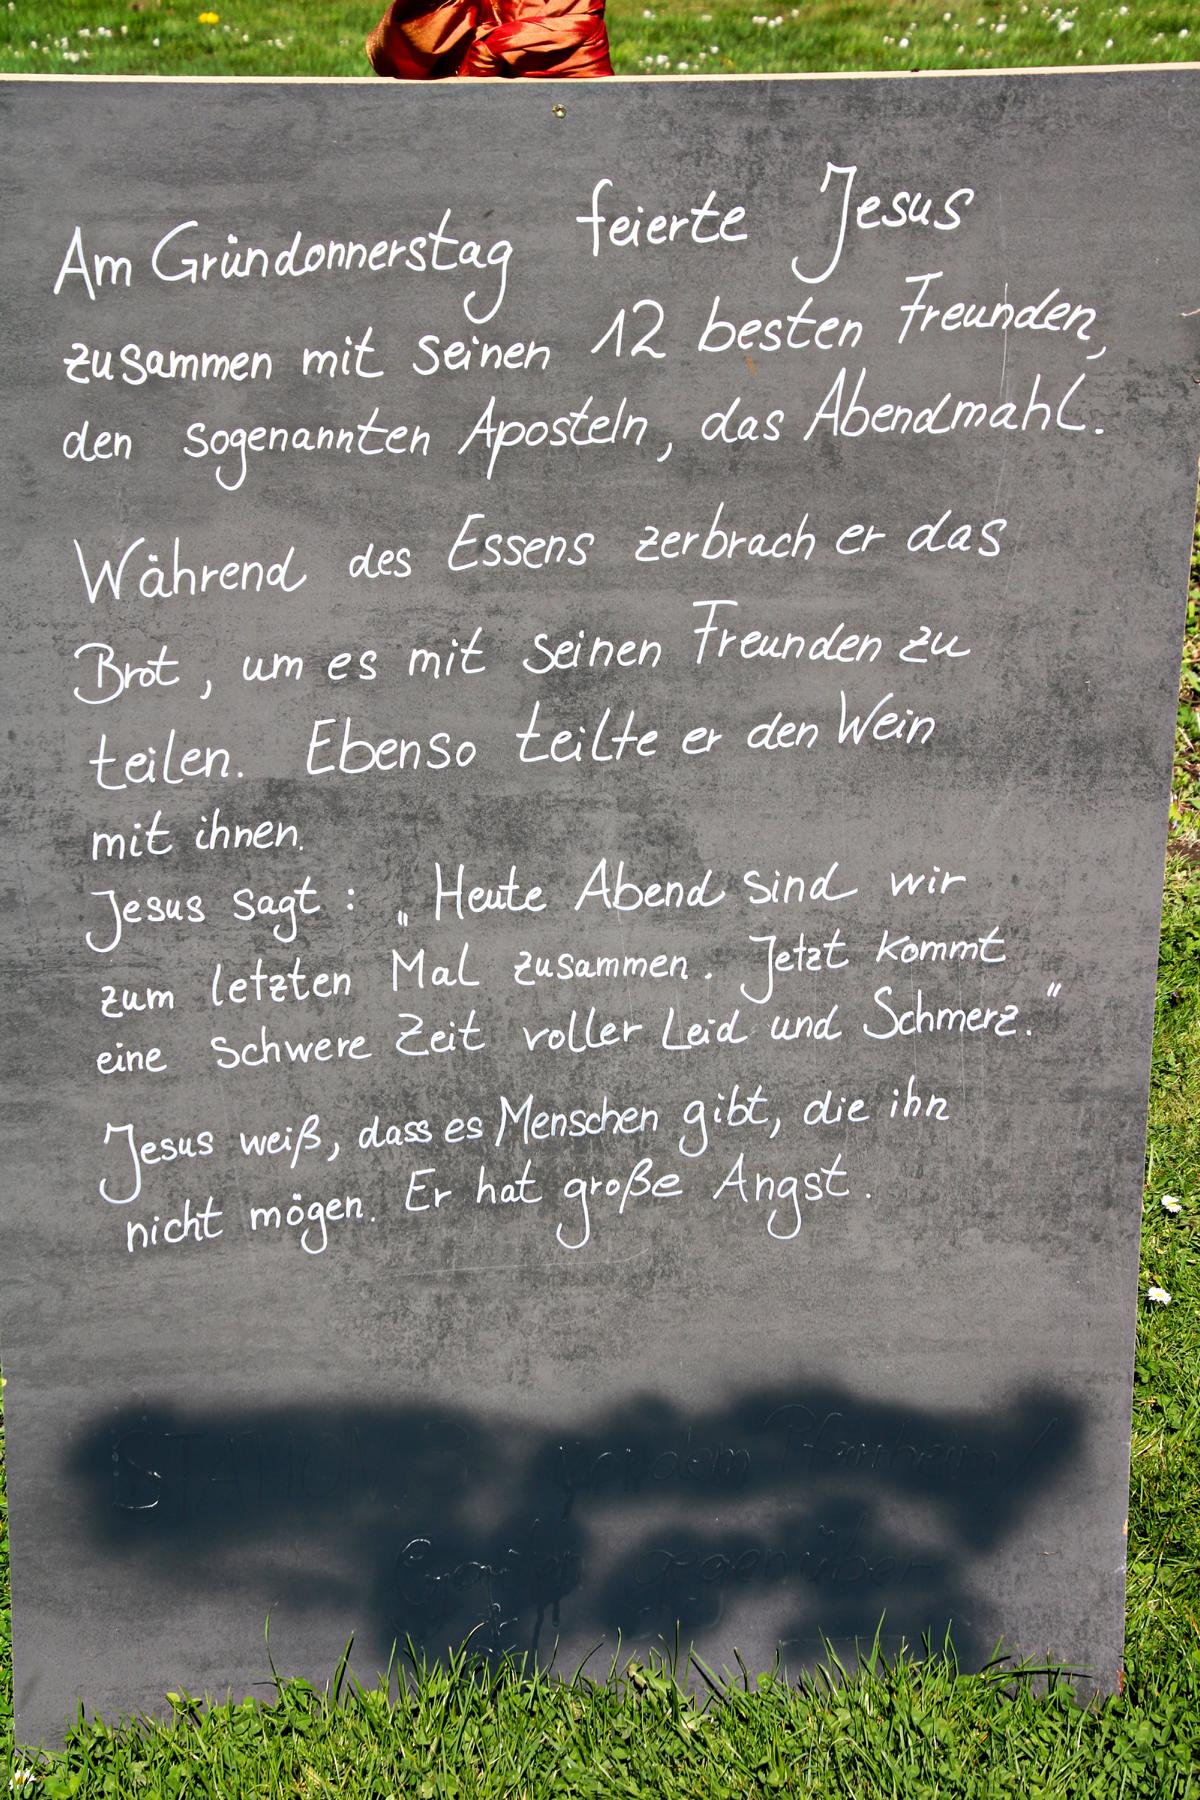 Am Gründonnerstag feierte Jesus
zusammen mit seinen 12 besten Freunden,
den sogenannten Aposteln, das Abendmahl.
Während des Essens zerbrach er das
Brot, um es mit seinen Freunden zu
teilen. Ebenso teilte er den Wein
mit ihnen.
Jesus sagt: „Heute Abend sind wir
zum letzten Mal zusammen. Jetzt kommt
eine schwere Zeit voller Leid und Schmerz."
Jesus weiß, dass es Menschen gibt, die ihn
nicht mögen. Er hat große Angst.
STATION vor dem Pfarrheim/
gegenüber